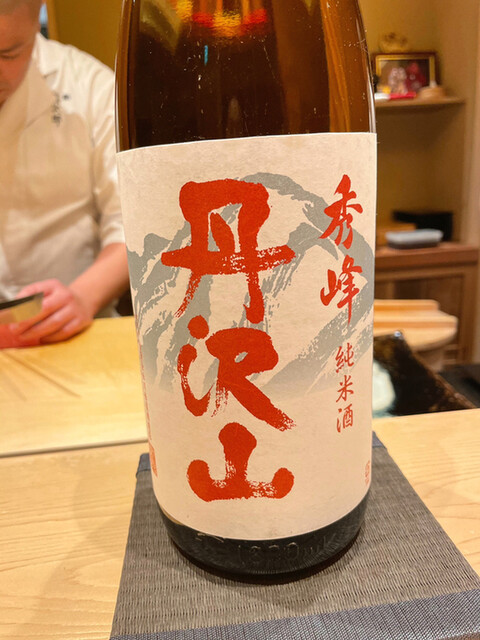 丹沢山
秀峰
純米酒